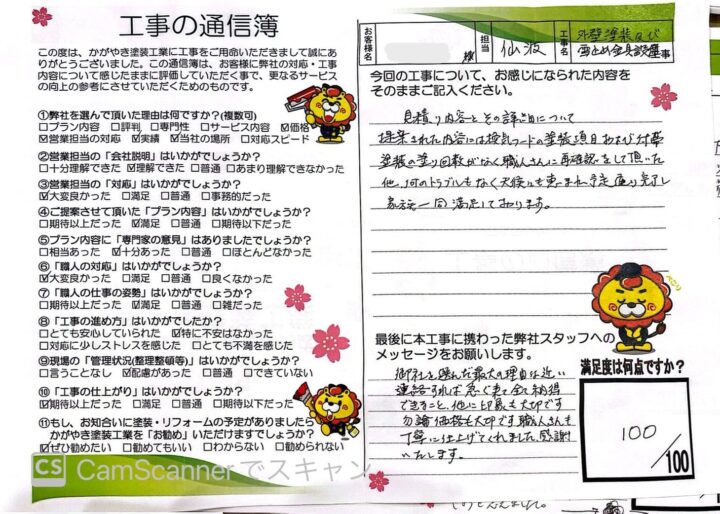 工事の通信簿
この度は、かがやき塗装工業に工事をご用命いただきまして誠にあ
りがとうございました。この通信簿は、お客様に弊社の対応・工事
内容について感じたままに評価していただく事で、更なるサービス
の向上の参考にさせていただくためのものです。
①弊社を選んで頂いた理由は何ですか?(複数可)
□プラン内容 □評判 □専門性 □サービス内容 ☑価格
☑営業担当の対応 ☑実績 ☑当社の場所 □対応スピード
②営業担当の「会社説明」はいかがでしょうか?
□十分理解できた ☑理解できた □普通 □あまり理解できなかった
③営業担当の「対応」はいかがでしょうか?
☑大変良かった □満足 □普通 □事務的だった
④ご提案させて頂いた「プラン内容」はいかがでしょうか?
□期待以上だった ☑満足 □普通 □期待以下だった
⑤プラン内容に「専門家の意見」はありましたでしょうか?
□相当あった ☑十分あった □普通 □ほとんどなかった
⑥「職人の対応」はいかがでしょうか?
☑大変良かった □満足 □普通 □良くなかった
⑦「職人の仕事の姿勢」はいかがでしょうか?
□期待以上だった ☑満足 □普通 □雑だった
⑧「工事の進め方」はいかがでしたか?
□とても安心していられた ☑特に不安はなかった
□対応に少しストレスを感じた □とても不満を感じた
⑨現場の「管理状況(整理整頓等)」はいかがでしょうか?
□言うことなし ☑配慮があった □普通 □できていない
⑩「工事の仕上がり」はいかがでしょうか?
☑期待以上だった □満足 □普通 □期待以下だった
⑪もし、お知合いに塗装・リフォームの予定がありましたら
かがやき塗装工業を「お勧め」いただけますでしょうか?
☑ぜひ勧めたい □勧めてもいい □わからない □勧められない
CS CamScannerでスキャン
お客様名 様 担当 仙波 工事名 外壁塗装及び
雪止め金具設置事
今回の工事について、お感じになられた内容を
そのままご記入ください。
見積り内容とその詳目について
提案された内容には換気フードの塗装項目および付帯
塗装の塗り回数がなく職人さんに再確認をして頂いた
他、何のトラブルもなく天候にも恵まれ予定通り完了し
家族一同満足しております。
ぺこり
最後に本工事に携わった弊社スタッフへの
メッセージをお願いします。
御社を選んだ最大の理由は近い
連絡すれば急ぐ事も全て納得
できること、他に印象も大切です
勿論価格も大切です職人さんも
丁寧に仕上げてくれました。感謝
いたします。
満足度は何点ですか?
100
/100